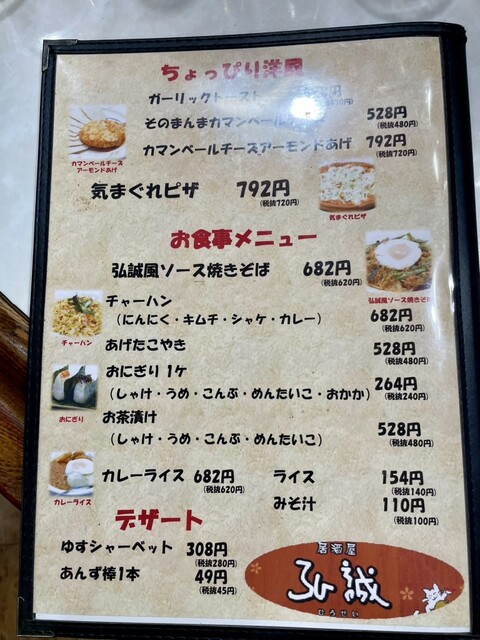 ちょっぴり洋風
ガーリックトースト
そのまんまカマンベール 528円
(税抜480円)
カマンベールチーズアーモンドあげ 792円
(税抜720円)
カマンベールチーズ
アーモンドあげ
気まぐれピザ 792円
(税抜720円)
気まぐれピザ
お食事メニュー
弘誠風ソース焼きそば 682円
(税抜620円)
弘誠風ソース焼きそば
チャーハン
(にんにく・キムチ・シャケ・カレー) 682円
(税抜620円)
チャーハン
あげたこやき 528円
(税抜480円)
おにぎり 1ケ
(しゃけ・うめ・こんぶ・めんたいこ・おかか) 264円
(税抜240円)
おにぎり
お茶漬け
(しゃけ・うめ・こんぶ・めんたいこ) 528円
(税抜480円)
カレーライス 682円 ライス 154円
(税抜620円) (税抜140円)
カレーライス
みそ汁 110円
(税抜100円)
デザート
ゆずシャーベット 308円
(税抜280円)
あんず棒1本 49円
(税抜45円)
居酒屋
弘誠
ひろせい